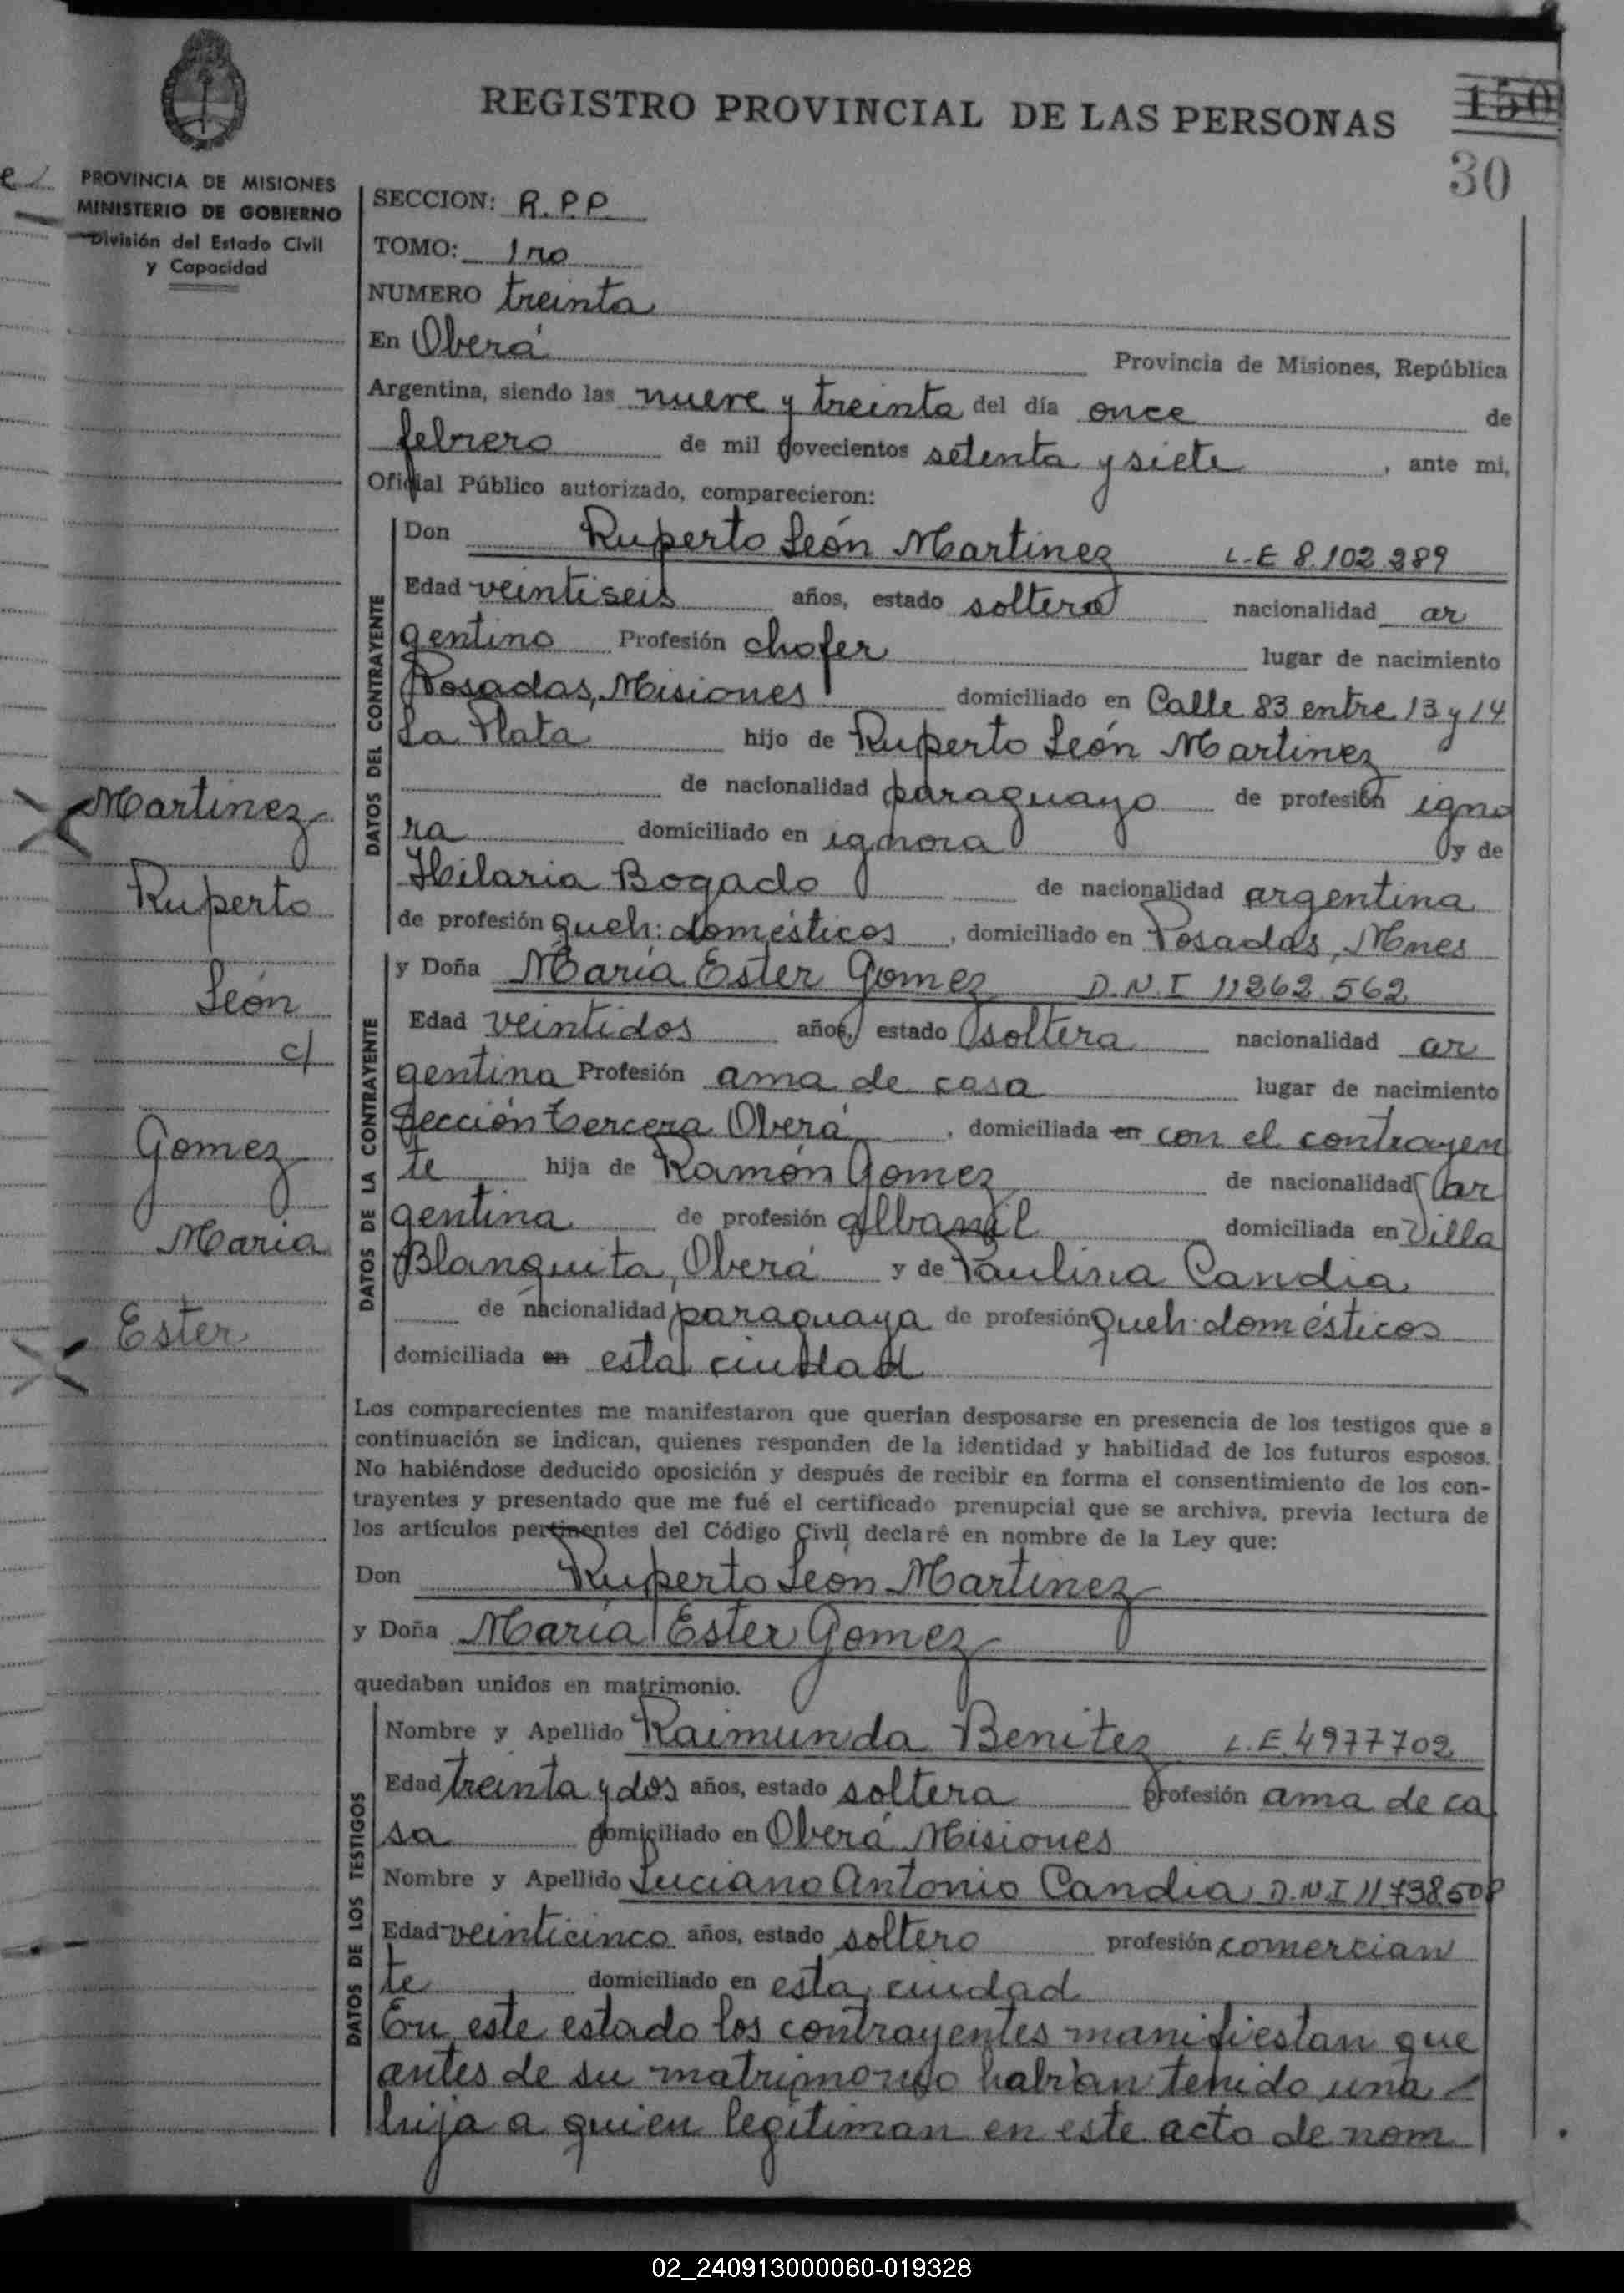 REGISTRO PROVINCIAL DE LAS PERSONAS
150
30
PROVINCIA DE MISIONES
MINISTERIO DE GOBIERNO
División del Estado Civil
y Capacidad
SECCION: R.P.P.
TOMO: 1ro
NUMERO treinta
En Oberá Provincia de Misiones, República
Argentina, siendo las nueve y treinta del día once de
febrero de mil novecientos setenta y siete, ante mi,
Oficial Público autorizado, comparecieron:
DATOS DEL CONTRAYENTE
Don Ruperto León Martinez L.E 8.102.289
Edad veintiseis años, estado soltero nacionalidad ar
gentino Profesión chofer lugar de nacimiento
Posadas, Misiones domiciliado en Calle 83 entre 13 y 14
La Plata hijo de Ruperto León Martinez
de nacionalidad paraguayo de profesión igno
ra domiciliado en ignora y de
Hilaria Bogado de nacionalidad argentina
de profesión queh: domésticos, domiciliado en Posadas, Mnes
DATOS DE LA CONTRAYENTE
y Doña María Ester Gomez D.N.I 11262.562
Edad veintidos años, estado soltera nacionalidad ar
gentina Profesión ama de casa lugar de nacimiento
Sección tercera Oberá, domiciliada en con el contrayen
te hija de Ramón Gomez de nacionalidad ar
gentina de profesión albañil domiciliada en Villa
Blanquita, Oberá y de Paulina Candia
de nacionalidad paraguaya de profesión queh. domésticos
domiciliada en esta ciudad
Martinez
Ruperto
León
c/
Gomez
Maria
Ester
Los comparecientes me manifestaron que querían desposarse en presencia de los testigos que a
continuación se indican, quienes responden de la identidad y habilidad de los futuros esposos.
No habiéndose deducido oposición y después de recibir en forma el consentimiento de los con-
trayentes y presentado que me fué el certificado prenupcial que se archiva, previa lectura de
los artículos pertinentes del Código Civil declaré en nombre de la Ley que:
Don Ruperto León Martinez
y Doña María Ester Gomez
quedaban unidos en matrimonio.
DATOS DE LOS TESTIGOS
Nombre y Apellido Raimunda Benitez L.E. 4977702
Edad treinta y dos años, estado soltera profesión ama de ca
sa domiciliado en Oberá Misiones
Nombre y Apellido Luciano Antonio Candia D.N.I 11.738.508
Edad veinticinco años, estado soltero profesión comercian
te domiciliado en esta ciudad
En este estado los contrayentes manifiestan que
antes de su matrimonio habían tenido una
hija a quien legitiman en este acto de nom
02_240913000060-019328